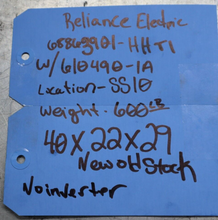 Reliance Electric
68869901-HHT1
W/610490-1A
Location-SS10
Weight-600LB
40X,22X29
New old Stock
No inverter